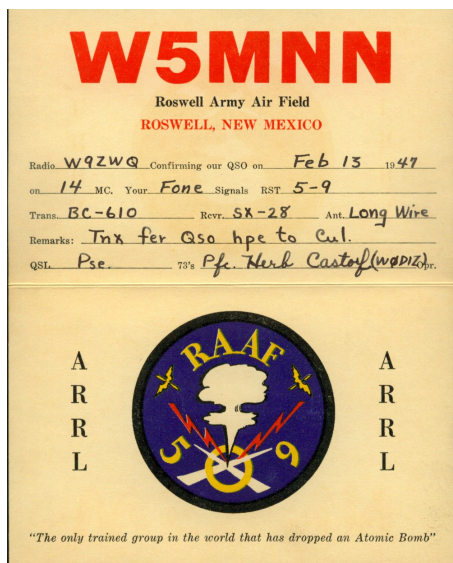 W5MNN
Roswell Army Air Field
ROSWELL, NEW MEXICO
Radio W9ZWQ Confirming our QSO on Feb 13 1947
on 14 MC. Your Fone Signals RST 5-9
Trans. BC-610 Rcvr. SX-28 Ant. Long Wire
Remarks: Tnx fer Qso hpe to Cul.
QSL Pse. 73's Pfc. Herb Castorf (WØDIZ) Opr.
ARRL
RAAF
509
ARRL
"The only trained group in the world that has dropped an Atomic Bomb"